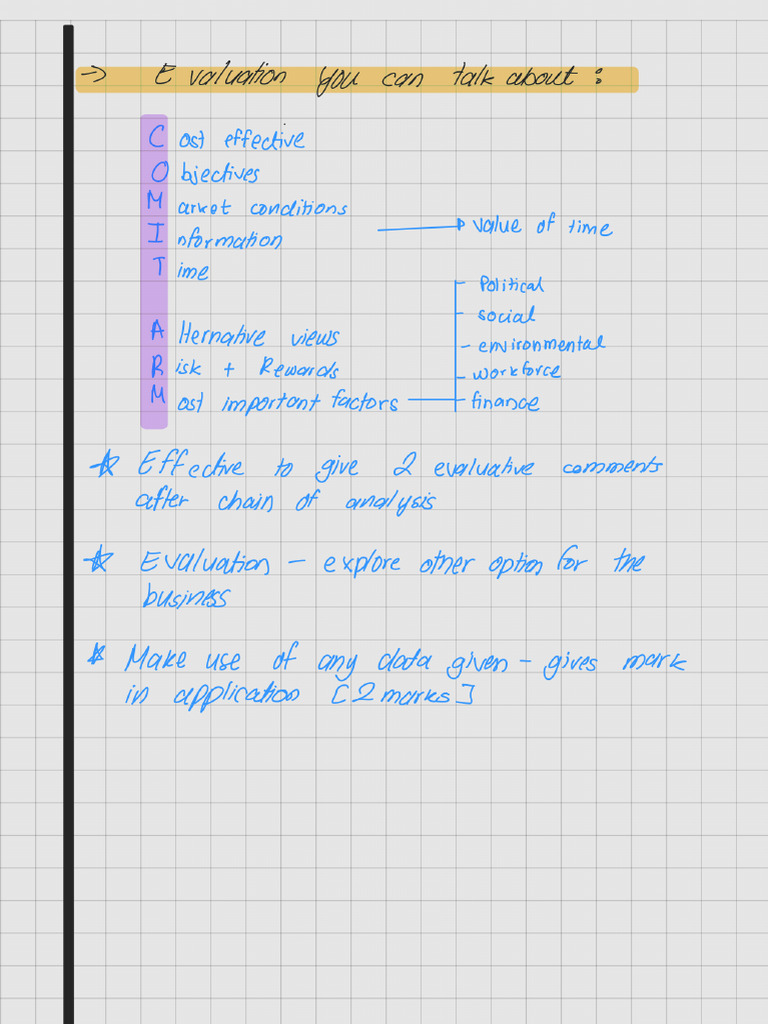 → Evaluation you can talk about:
Cost effective
Objectives
Market conditions
Information → value of time
Time
Alternative views
Risk + Rewards
Most important factors
- Political
- social
- environmental
- workforce
- finance
☆ Effective to give 2 evaluative comments
after chain of analysis
☆ Evaluation – explore other option for the
business
☆ Make use of any data given – gives mark
in application [2 marks]